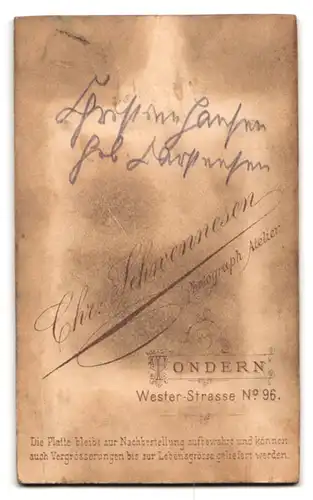 Christine Hansen
geb Carstensen
Chr. Schwennesen
Photograph. Atelier.
TONDERN
Wester-Strasse Nº 96.
Die Platte bleibt zur Nachbestellung aufbewahrt und können
auch Vergrösserungen bis zur Lebensgrösse geliefert werden.